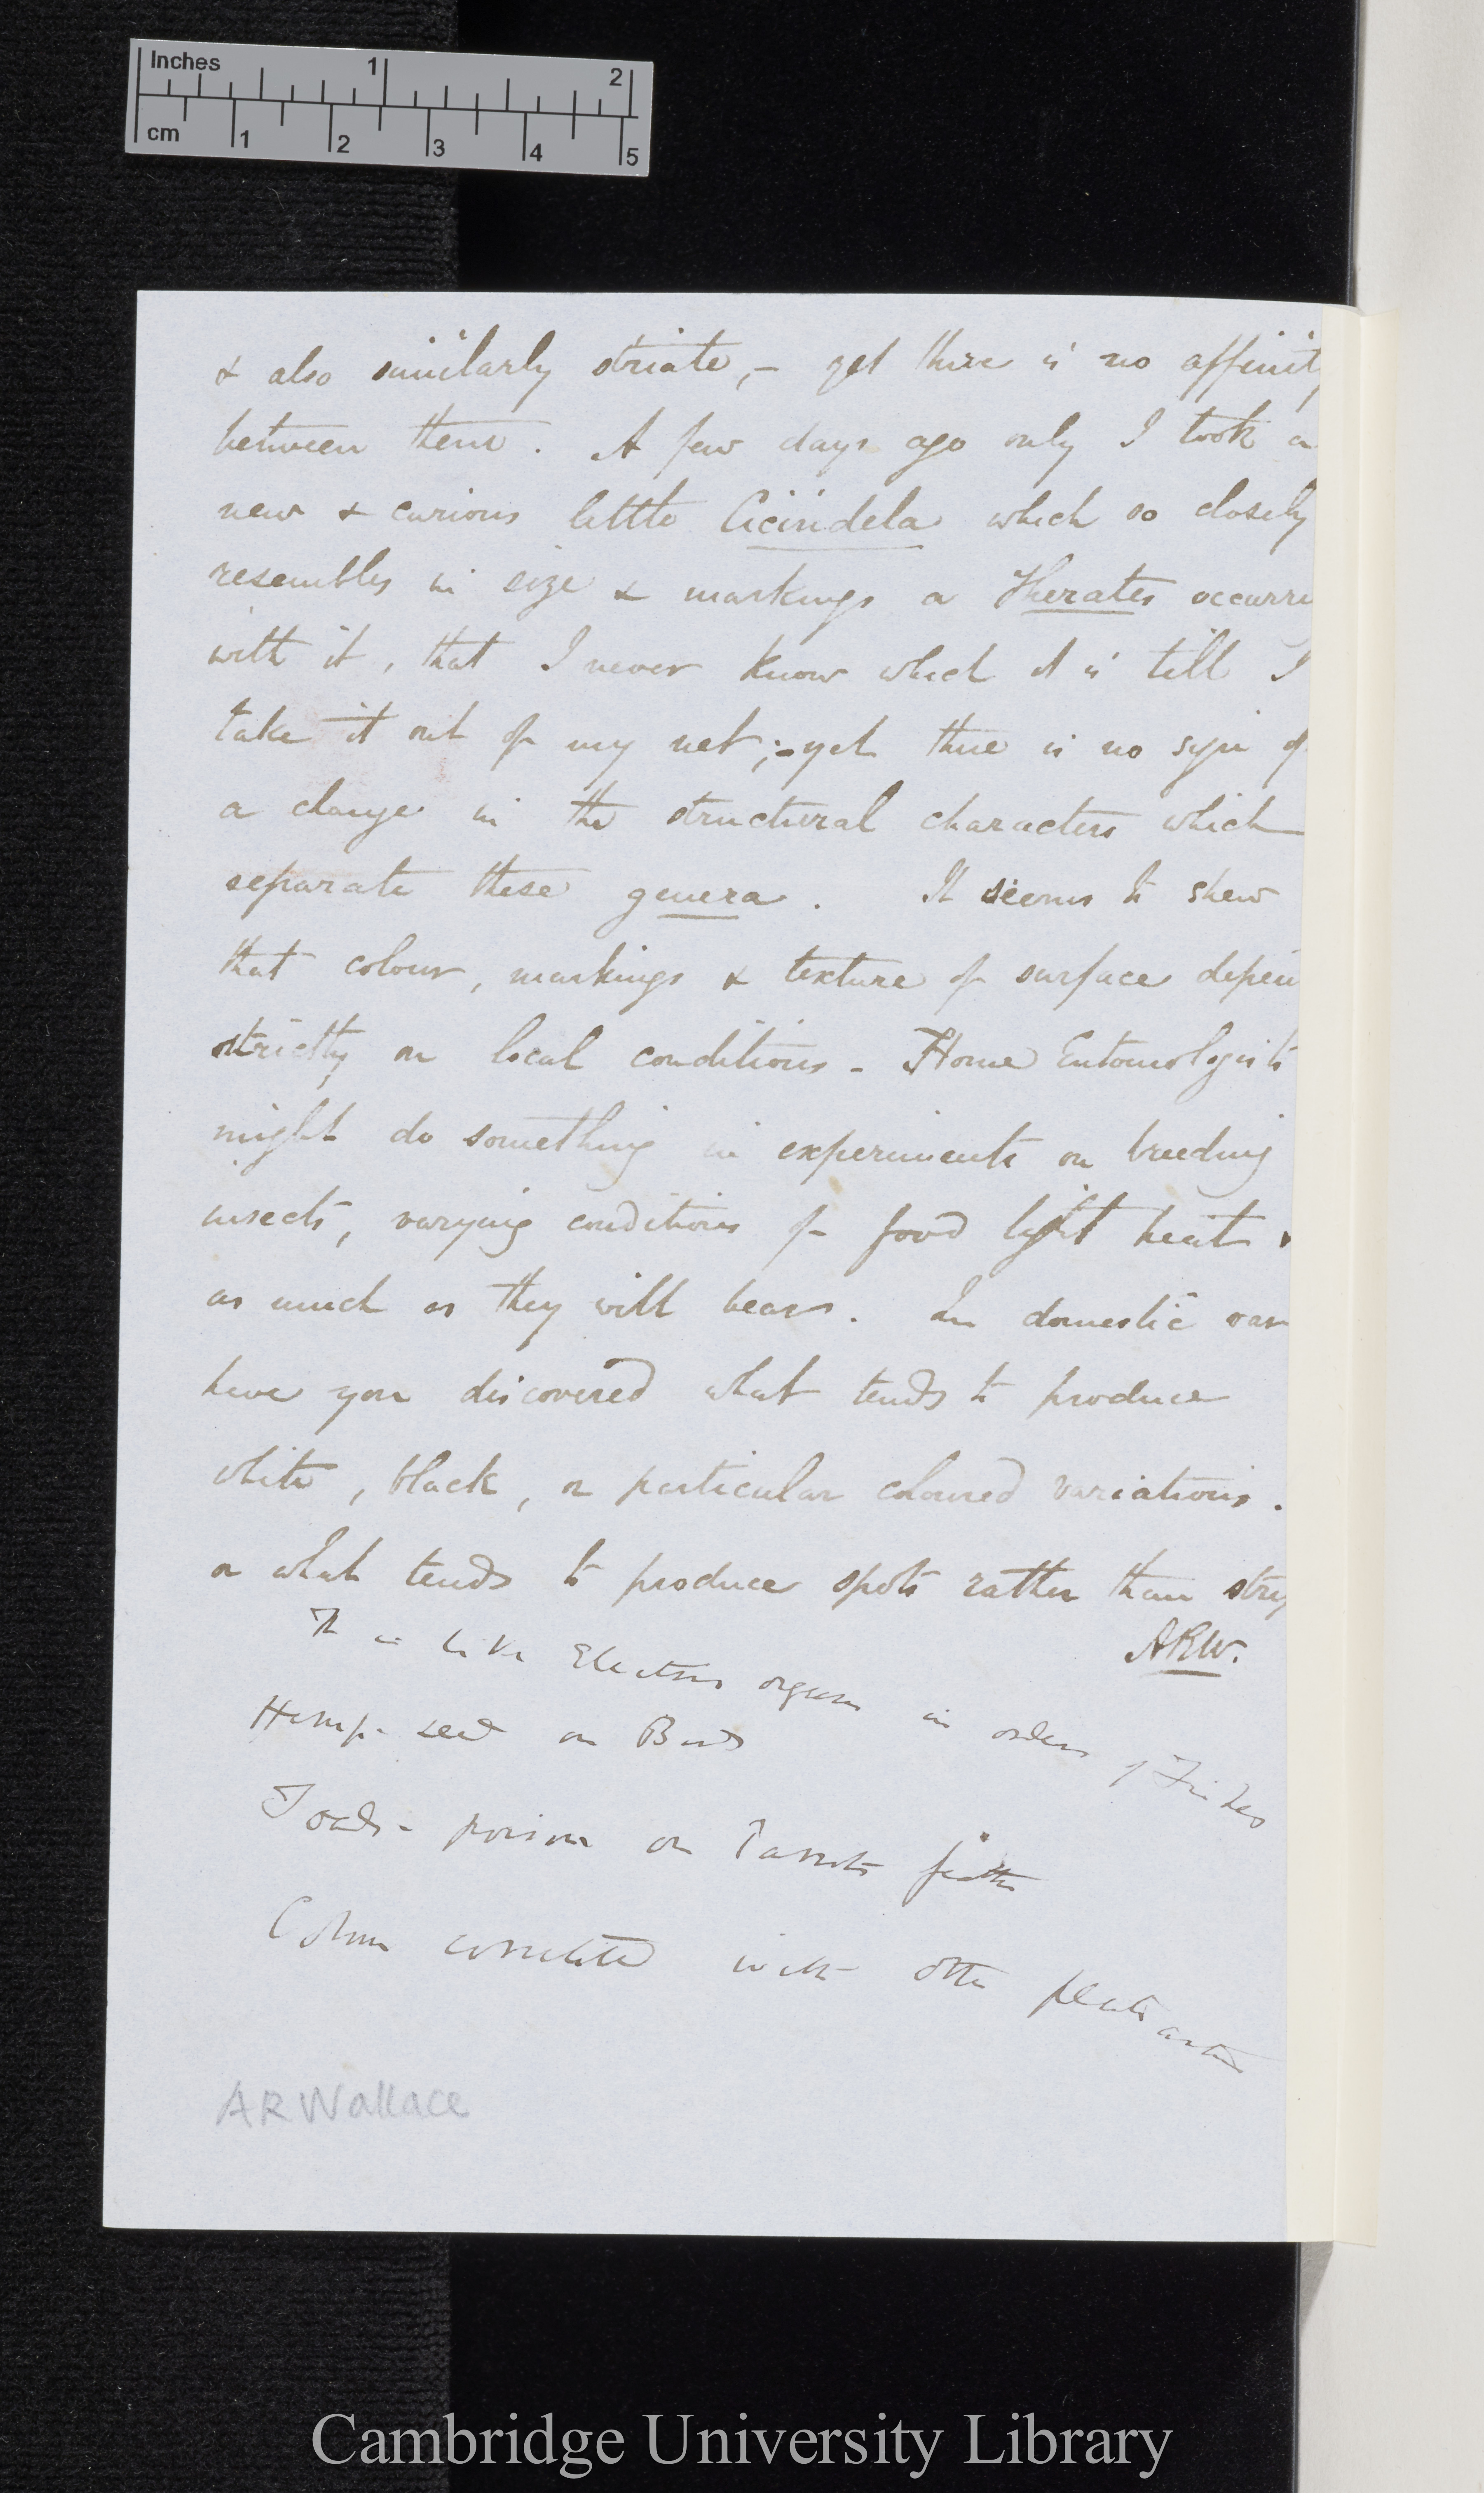 Inches 1 2
cm 1 2 3 4 5
& also similarly striate,– yet there is no affinit
between them. A few days ago only I took a
new & curious little Cicindela which so closely
resembles in size & markings a Therates occurri
with it, that I never know which it is till I
take it out of my net;–yet there is no sign of
a change in the structural characters which
separate these genera. It seems to shew
that colour, markings & texture of surface depen
strictly on local conditions – Home Entomologists
might do something in experiments on breeding
insects, varying conditions of food light heat
as much as they will bear. In domestic var
have you discovered what tends to produce
white, black, or particular coloured variations.
or what tends to produce spots rather than strip
ARW.
It is like Electric organs in orders of Fishes
Hemp-seed on Birds
Toads – poison on Parrots feathers
Colour correlated with other
AR Wallace
Cambridge University Library